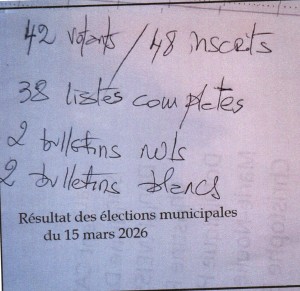 42 votants / 48 inscrits
38 listes completes
2 bulletins nuls
2 bulletins blancs
Résultat des élections municipales
du 15 mars 2026